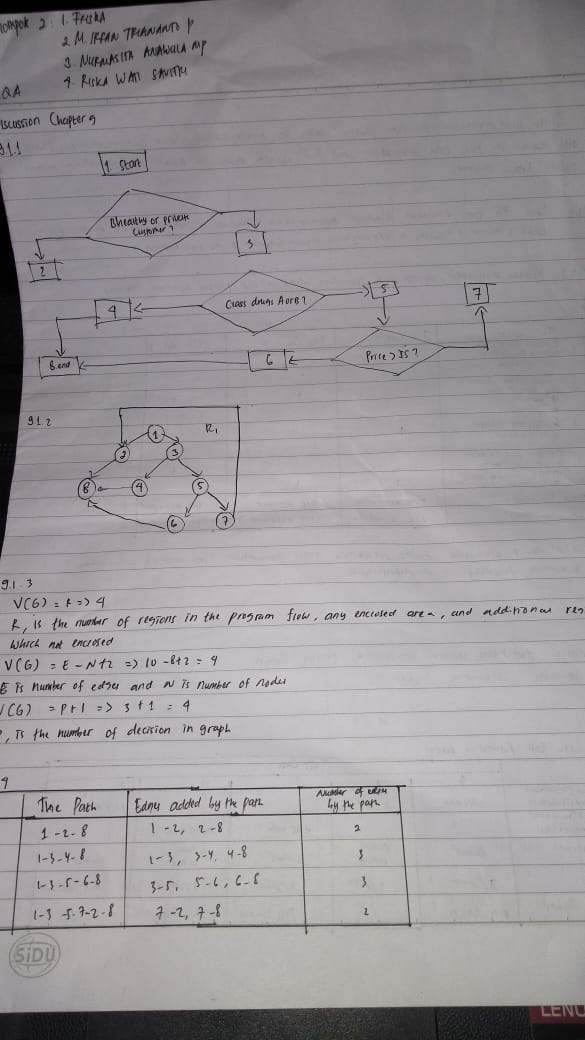 lompok 2 : 1. FRISKA
2. M. IRFAN TRIANANTO P
3. NURMASITA ANAWULA MP
4. RISKA WATI SAVITRI
QA
iscussion Chapter 9
9.1.1
1. Start
Bhealthy or private
Customer?
2
3
4
Class drugs A or B?
5
7
8. end
6
Price > 35?
9.1.2
R,
1
2
3
8
4
5
6
7
9.1.3
V(G) = R => 4
R, is the number of regions in the program flow, any enclosed area, and additional reg
Which not enclosed
V(G) = E - N+2 => 10 - 8+2 = 4
E is number of edges and N is number of nodes
V(G) = P+1 => 3 + 1 = 4
P, Is the number of decision in graph
4
The Path
Edges added by the path
Number of edges
by the path
1-2-8
1-2, 2-8
2
1-3-4-8
1-3, 3-4, 4-8
3
1-3-5-6-8
3-5, 5-6, 6-8
3
1-3-5-7-2-8
7-2, 7-8
2
SiDU
LENO